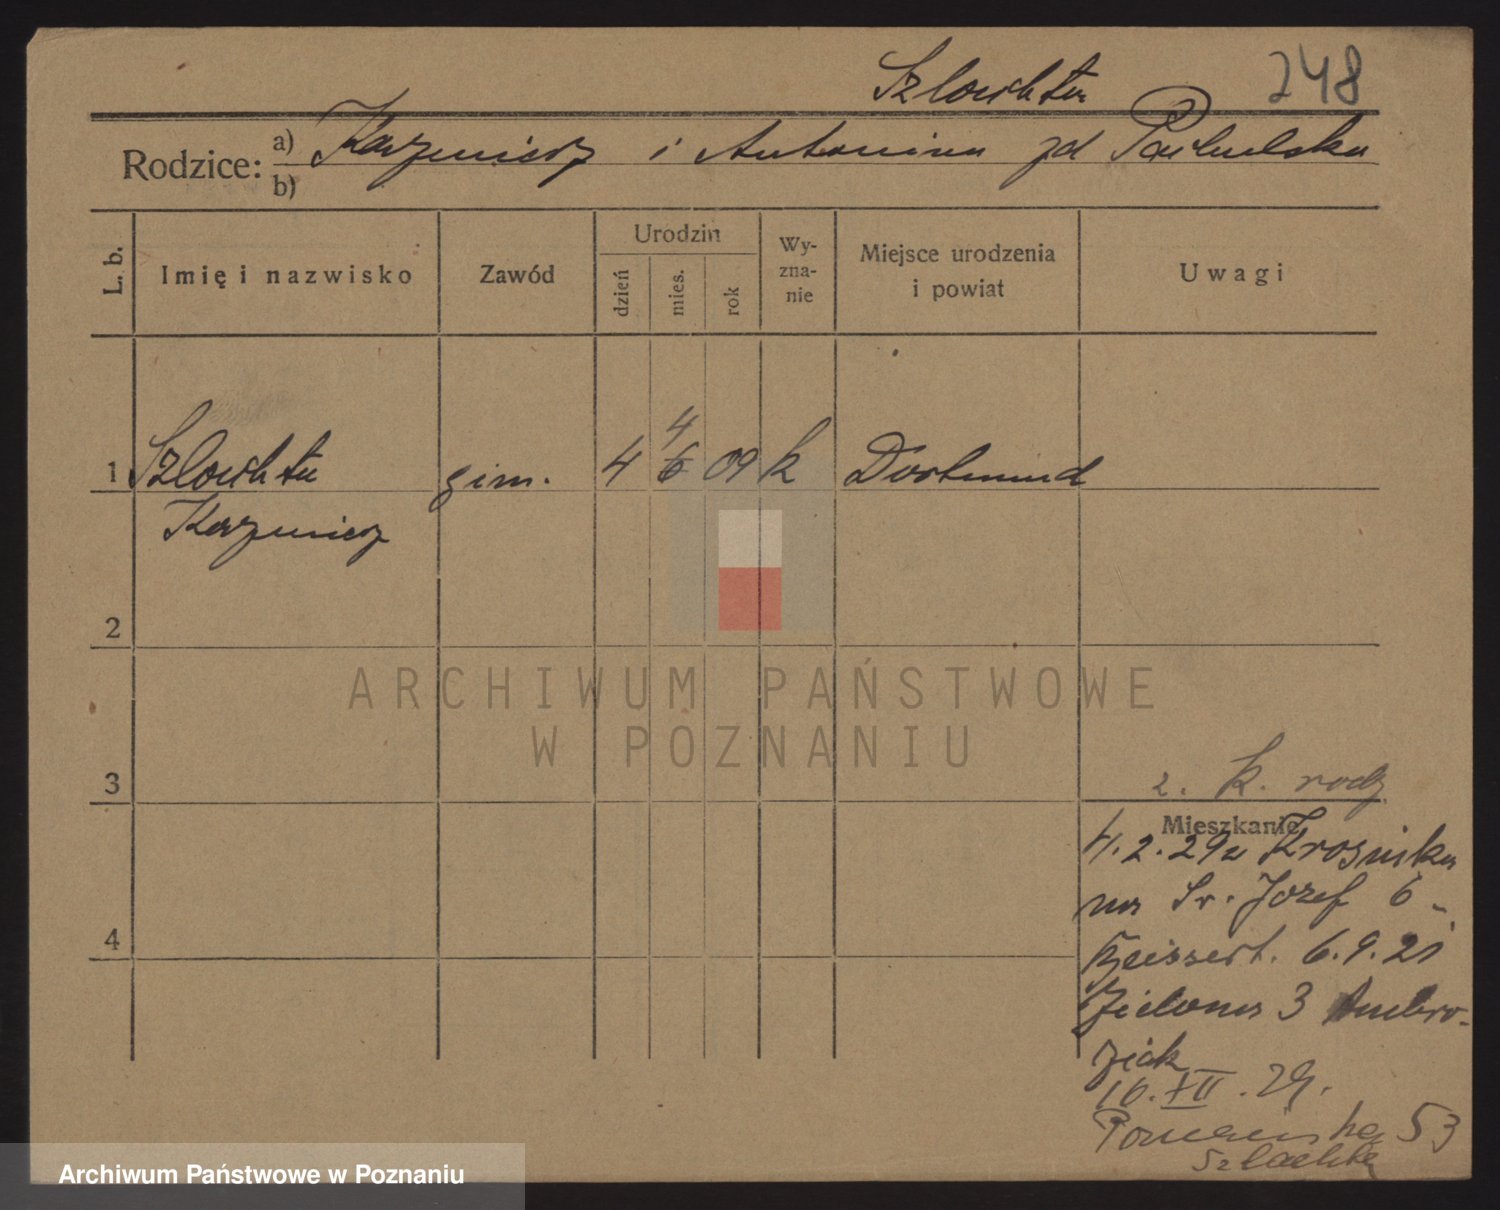 Szlachta 248
Rodzice: a) Kazimierz i Antonina zd
b)
L. b.
Imię i nazwisko
Zawód
Urodzin
dzień
mies.
rok
Wy-
zna-
nie
Miejsce urodzenia
i powiat
Uwagi
4
1 Szlachta gim. 4 6 09 k Dortmund
Kazimierz
2
ARCHIWUM PAŃSTWOWE
W POZNANIU
3
z. k. rodz
Mieszkanie
4.2.29 z Krośnika
na Św. Józef 6
4
6.9.21
Zielona 3 Ambro-
ziak
10.XII.29.
Poznańska 53
Szlachta
Archiwum Państwowe w Poznaniu